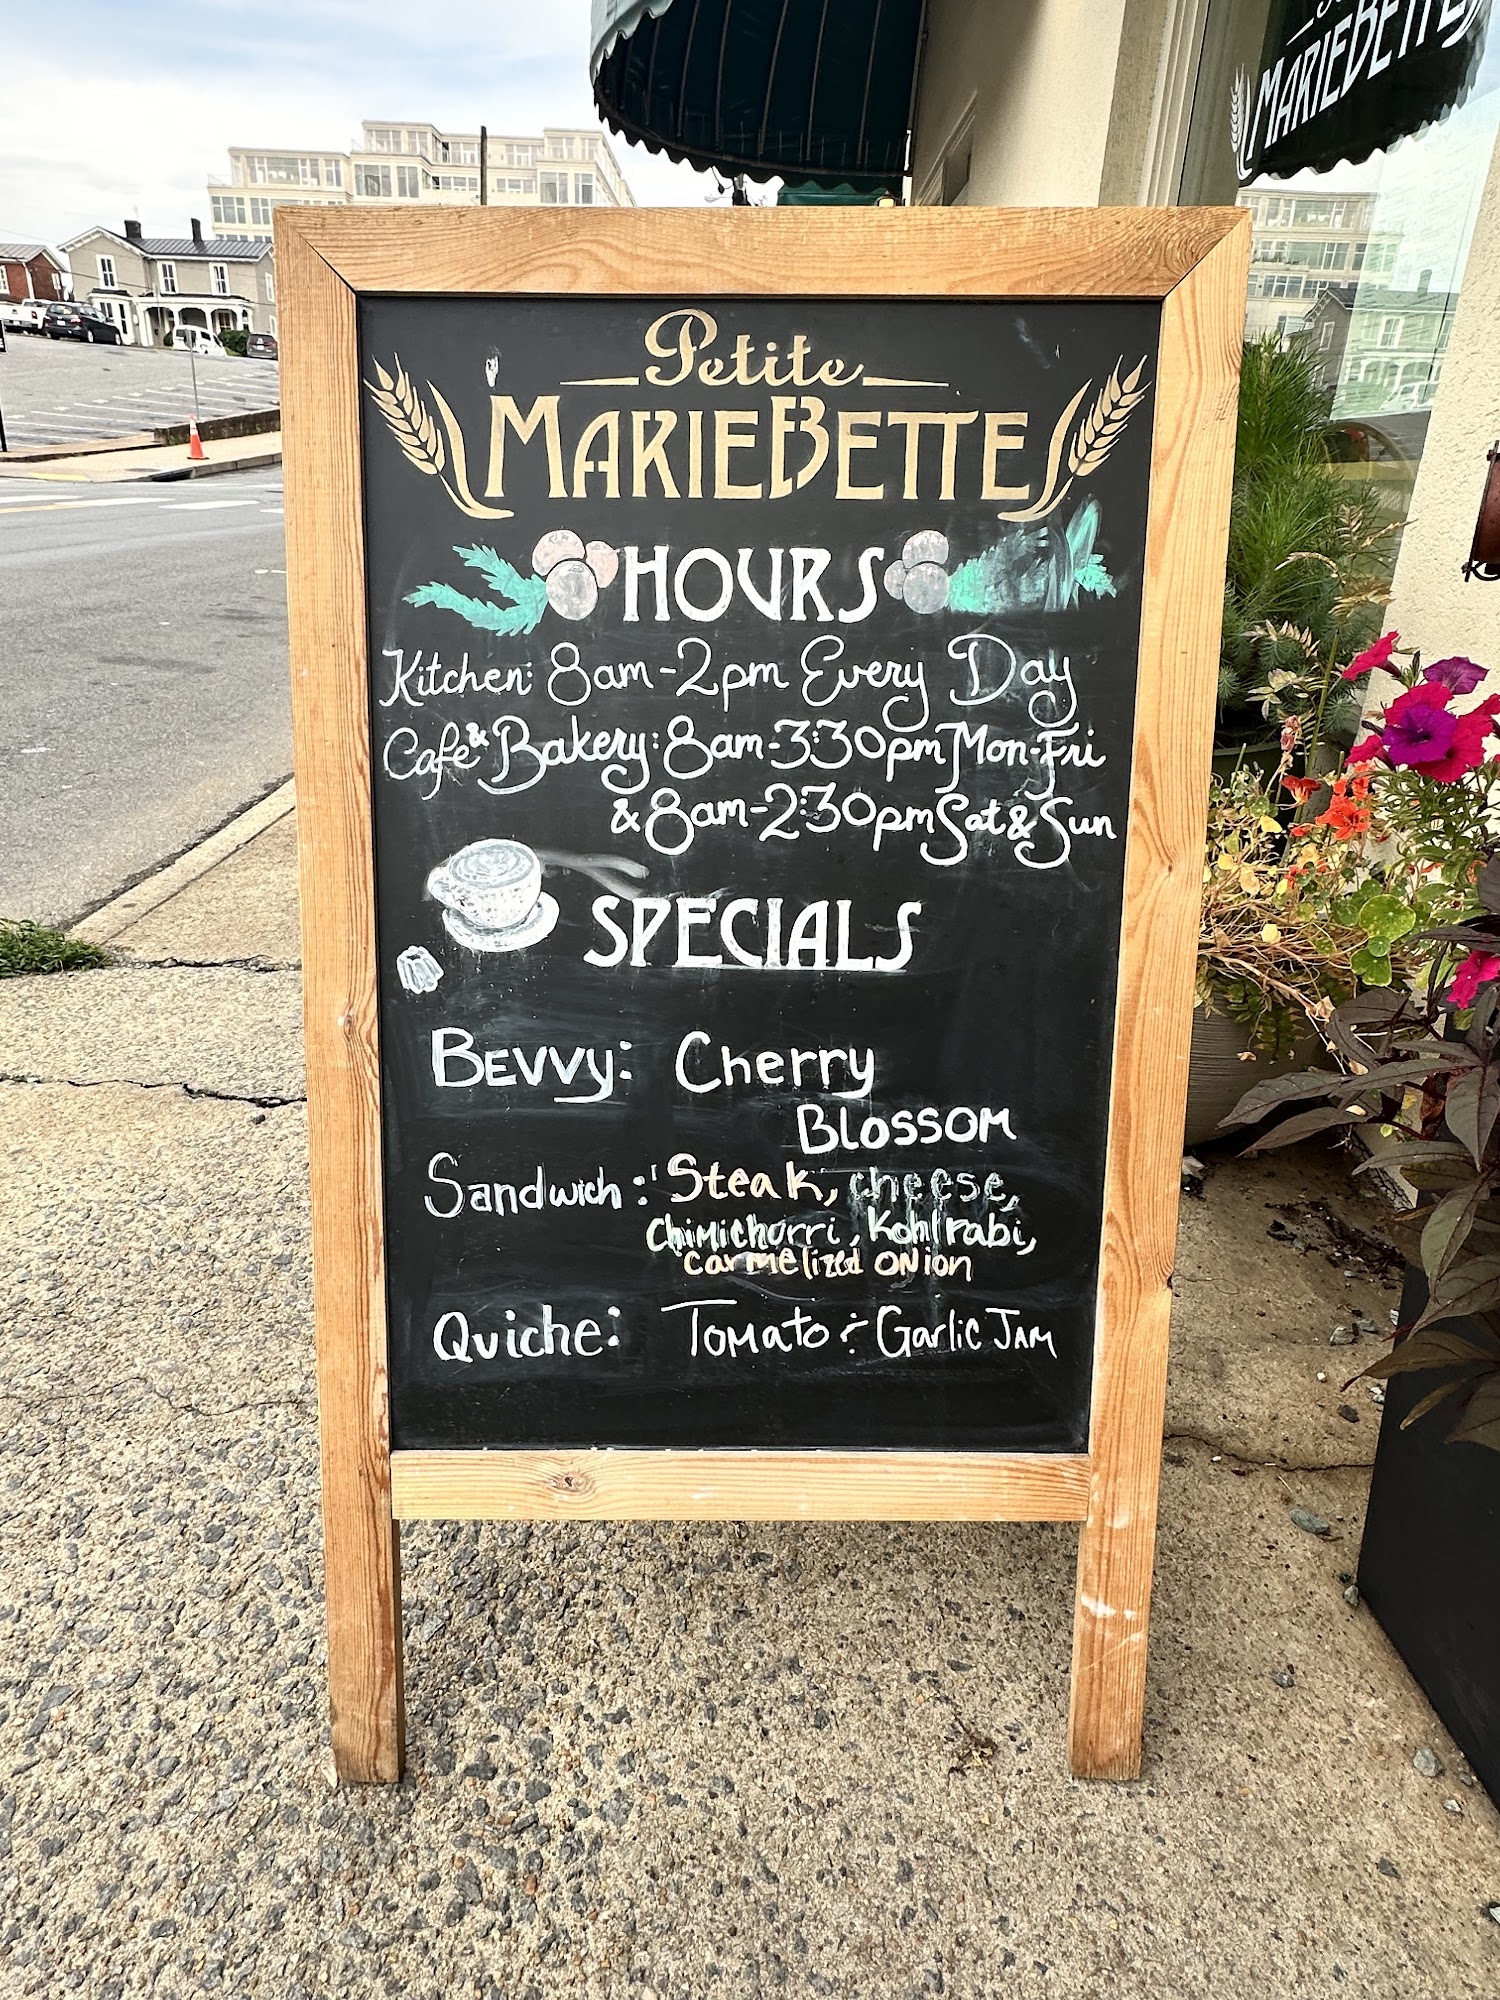 Petite
MARIEBETTE
HOURS
Kitchen: 8am-2pm Every Day
Cafe & Bakery: 8am-3:30pm Mon-Fri
& 8am-2:30pm Sat & Sun
SPECIALS
BEVVY: Cherry
BLOSSOM
Sandwich: Steak, cheese,
Chimichurri, Kohlrabi,
carmelized ONion
Quiche: TOMato & Garlic JAM
MARIEBETTE